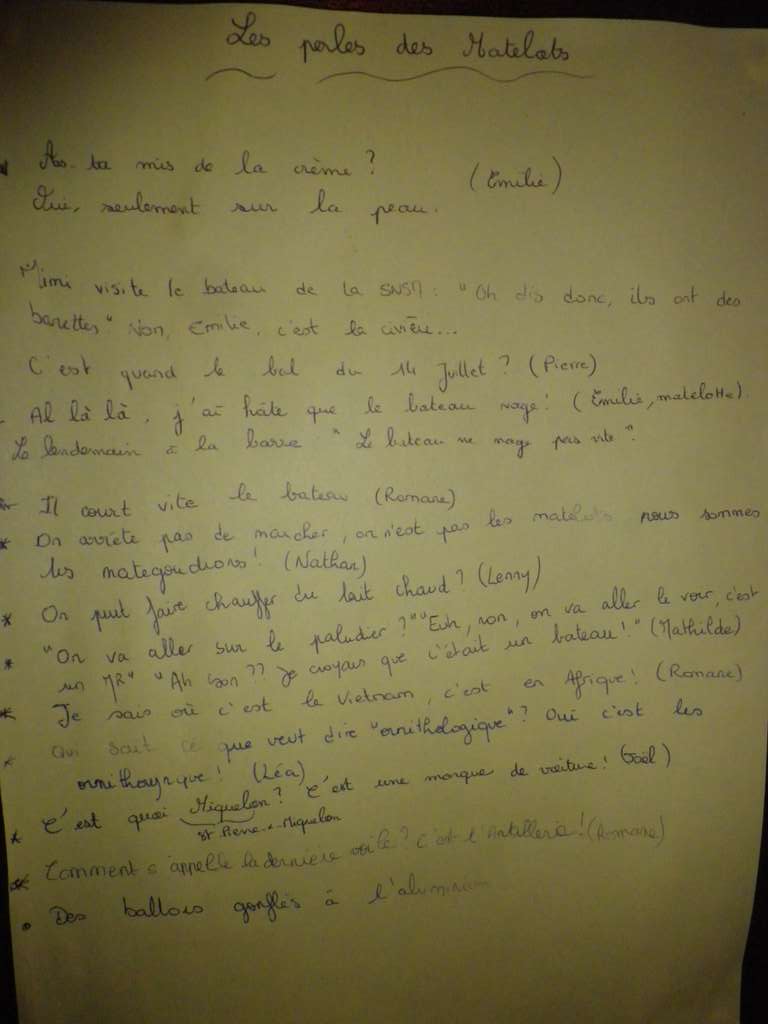 Les perles des Matelots
* As-tu mis de la crème ? (Emilie)
Oui, seulement sur la peau.
Mimi visite le bateau de la SNSM : "Oh dis donc, ils ont des
barettes" Non, Emilie, c'est la civière...
C'est quand le bal du 14 Juillet ? (Pierre)
- Al là là, j'ai hâte que le bateau nage ! (Emilie, matelotte).
Le lendemain à la barre "Le bateau ne nage pas vite".
* Il court vite le bateau (Romane)
* On arrête pas de marcher, on n'est pas les matelots nous sommes
les mategoudrons ! (Nathan)
* On peut faire chauffer du lait chaud ? (Lenny)
* "On va aller sur le paludier ?" "Euh, non, on va aller le voir, c'est
un Mr" "Ah bon ?? Je croyais que c'était un bateau !" (Mathilde)
* Je sais où c'est le Vietnam, c'est en Afrique ! (Romane)
* Qui sait ce que veut dire "ornithologique" ? Oui c'est les
! (Léa)
* C'est quoi Miquelon ? C'est une marque de voiture ! (Gaël)
St Pierre-&-Miquelon
* Comment s'appelle la dernière voile ? C'est l'Antillerie ! (Romane)
• Des ballons gonflés à l'aluminium